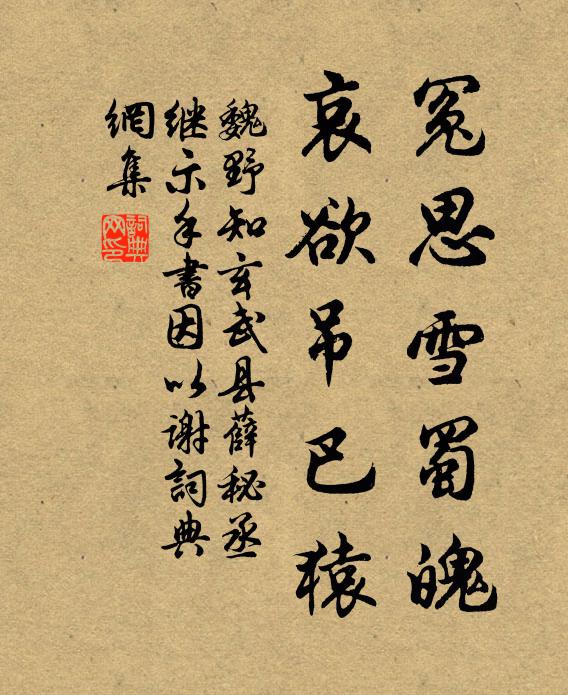 冤思雪蜀魄
哀欲吊巴猿
魏野知玄武县薛秘丞
继示手书因以谢词典
網集
詞典網印